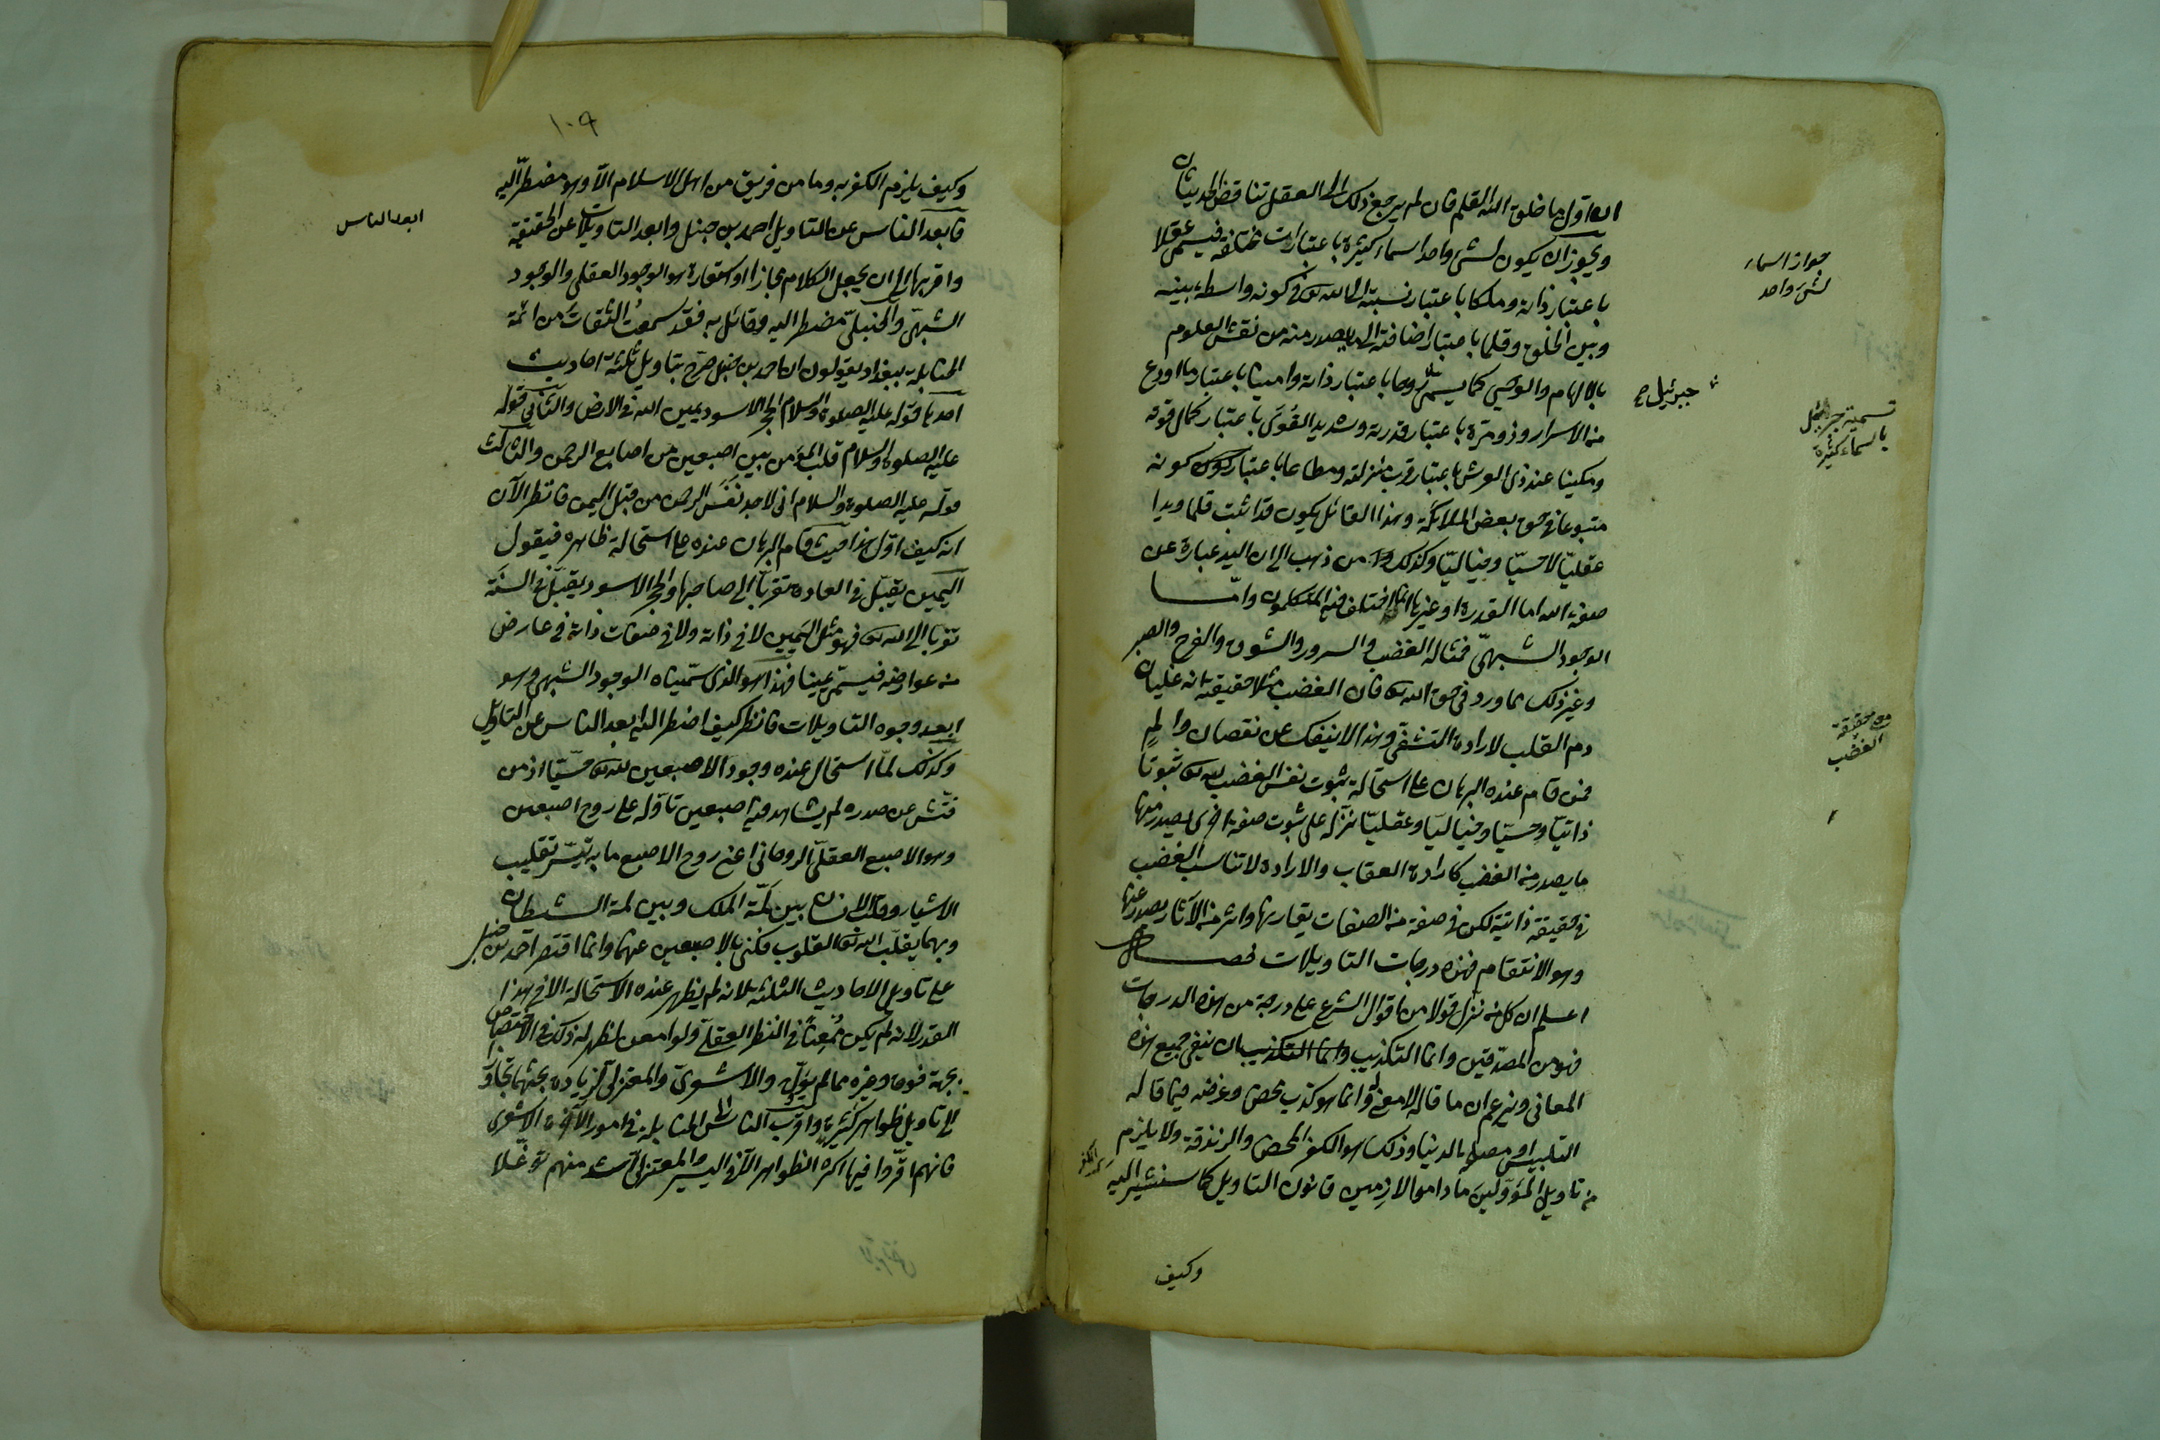 ان اول ما خلق الله القلم فان لم يرجع ذلك الى العقل تناقض الحديثان
ويجوز ان يكون لشئ واحد اسماء كثيرة باعتبارات مختلفة فيسمى عقلا
باعتبار ذاته وملكا باعتبار نسبته الى الله تعالى في كونه واسطة بينه
وبين الخلق وقلما باعتبار اضافته الى ما يصدر منه من نقش العلوم
بالالهام والوحي كما يسمى روحا باعتبار ذاته وامينا باعتبار ما اودع
من الاسرار وذو مرة باعتبار قدرته وشديد القوى باعتبار كمال قوته
ومكينا عند ذى العرش باعتبار قرب منزلته ومطاعا باعتبار كونه
متبوعا في حق بعض الملائكة وهذا القائل يكون قد اثبت قلما ويدا
عقليا لا حسيا وخياليا وكذلك من ذهب الى ان اليد عبارة عن
صفة لله اما القدرة او غيرها كما اختلف فيه المتكلمون واما
الوجود الشبهى فمثاله الغضب والسرور والشوق والفرح والصبر
وغير ذلك مما ورد في حق الله تعالى فان الغضب مثلا حقيقته انه غليان
دم القلب لارادة التشفى وهذا لا ينفك عن نقصان والم
فمن قام عنده البرهان على استحالة ثبوت نفس الغضب لله تعالى ثبوتا
ذاتيا وحسيا وخياليا وعقليا نزله على ثبوت صفة اخرى يصدر منها
ما يصدر من الغضب كارادة العقاب والارادة لا تناسب الغضب
في حقيقة ذاتية لكن في صفة من الصفات يقاربها واثر من الآثار يصدر عنها
وهو الانتقام فهذه درجات التاويلات فصل
اعلم ان كل من نزل قولا من اقوال الشرع على درجة من هذه الدرجات
فهو من المصدقين وانما التكذيب وانما التكذيب ان ينفى جميع هذه
المعانى ويزعم ان ما قاله لا معنى له وانما هو كذب محض وغرضه فيما قاله
التلبيس او مصلحة الدنيا وذلك هو الكفر المحض والزندقة ولا يلزم
من تاويل المؤولين ما داموا لازمين قانون التاويل كما سنشير اليه
وكيف
جواز اسماء
لشئ واحد
جبرئيل ع
تسمية جبرئيل
باسماء كثيرة
حقيقة
الغضب
١٠٩
وكيف يلزم الكفر به وما من فريق من اهل الاسلام الا وهو مضطر اليه
فابعد الناس عن التاويل احمد بن حنبل وابعد التاويلات عن الحقيقة
واقربها الى ان يجعل الكلام مجازا او استعارة هو الوجود العقلى والوجود
الشبهى والحنبلى مضطر اليه وقائل به فقد سمعت الثقات من ائمة
الحنابلة ببغداد يقولون ان احمد بن حنبل صرح بتاويل ثلثة احاديث
احدها قوله عليه الصلوة والسلام الحجر الاسود يمين الله في الارض والثانى قوله
عليه الصلوة والسلام قلب المؤمن بين اصبعين من اصابع الرحمن والثالث
قوله عليه الصلوة والسلام انى لاجد نفس الرحمن من قبل اليمن فانظر الآن
انه كيف اول هذا حيث قام البرهان عنده على استحالة ظاهره فيقول
اليمين يقبل في العادة تقربا الى صاحبها والحجر الاسود يقبل في السنة
تقربا الى الله تعالى فهو مثل اليمين لا في ذاته ولا في صفات ذاته في عارض
من عوارضه فيسمى يمينا فهذا هو الذى سميناه الوجود الشبهى وهو
ابعد وجوه التاويلات فانظر كيف اضطر اليه ابعد الناس عن التاويل
وكذلك لما استحال عنده وجود الاصبعين لله تعالى حسيا اذ من
فتش عن صدره لم يشاهد فيه اصبعين تاوله على روح اصبعين
وهو الاصبع العقلى الروحانى اعنى روح الاصبع ما به تيسر تقليب
الاشياء وقلب الانسان بين لمة الملك وبين لمة الشيطان
وبهما يقلب الله تعالى القلوب فكنى بالاصبعين عنهما وانما اقتصر احمد بن حنبل
على تاويل الاحاديث الثلثة لانه لم يظهر عنده الاستحالة الا في هذا
القدر لانه لم يكن ممعنا في النظر العقلى ولو امعن لظهر له ذلك في الاختصاص
بجهة فوق وغيره مما لم يؤل والاشعرى والمعتزلى لزيادة بحثهما تجاوزا
الى تاويل ظواهر كثيرة واقرب الناس الى الحنابلة في امور الآخرة الاشعرى
فانهم اقروا فيها اكثر الظواهر الا في اليسير والمعتزلى اشد منهم توغلا
ابعد الناس